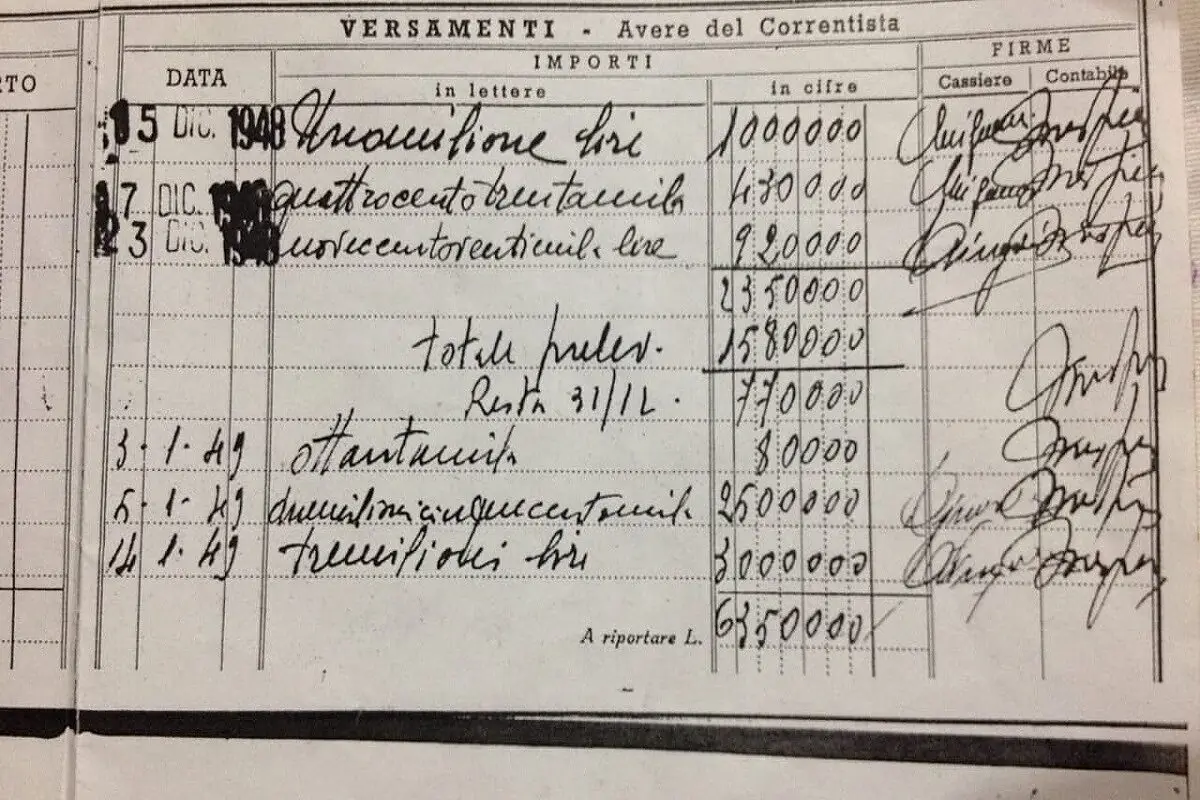 VERSAMENTI - Avere del Correntista
RTO
DATA
IMPORTI
FIRME
in lettere
in cifre
Cassiere
Contabile
15 DIC. 1948 Unomilione lire 1000000
17 DIC. 1948 quattrocentotrentamila 430000
23 DIC. 1948 novecentoventimila lire 920000
2350000
totale prelev. 1580000
Resta 31/12. 770000
3-1-49 ottantamila 80000
5-1-49 duemilionicinquecentomila 2500000
14 1-49 tremilioni lire 3000000
A riportare L. 6350000